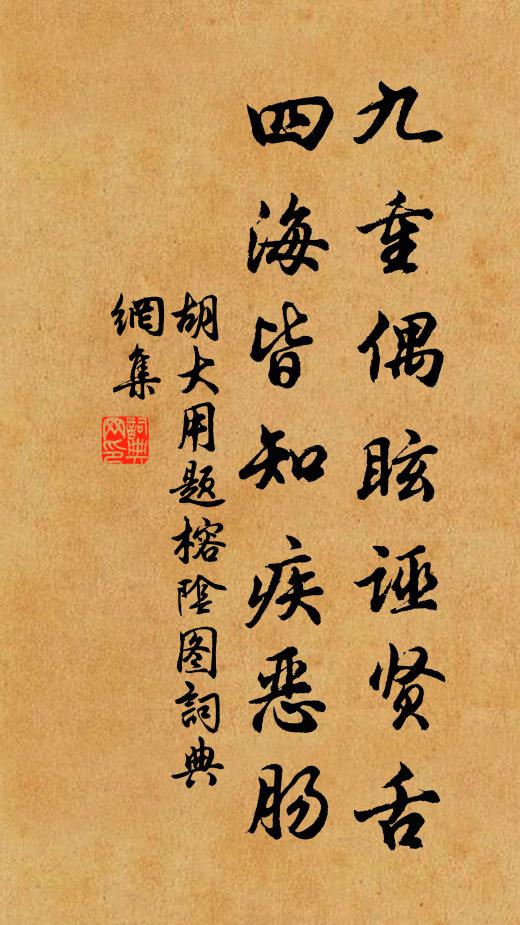 九重偶眩诬贤舌
四海皆知疾恶肠
胡大用题榕阴图詞典
網集
詞典网印